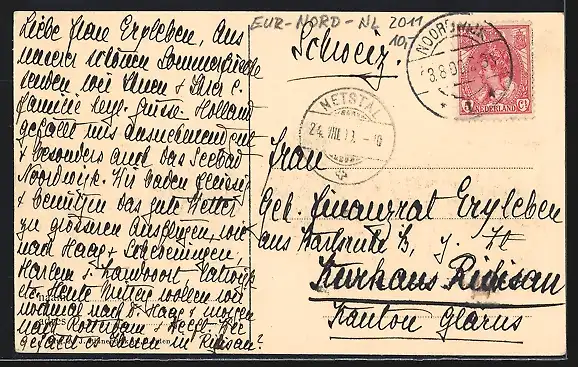 Liebe Frau Erxleben, Aus
unserer schönen Sommerfrische
senden wir Ihnen & Ihrer l.
Familie herzl. Grüsse. Holland
gefällt uns ausnehmend gut
& besonders auch das Seebad
Noordwijk. Wir baden fleissig
& benützen das gute Wetter
zu grösseren Ausflügen, wie
nach Haag & Scheveningen,
Harlem & Zandvoort, Katwijk
etc. Heute Mittag wollen wir
nochmal nach d. Haag & morgen
nach Rotterdam & Delft. Wie
gefällt es Ihnen in Richisau?
EUR-NORD-NL 2011
10,-
Schweiz.
NOORDWIJK
NEDERLAND
NETSTAL
24. VIII. 11. - 10
Frau
Geh. Finanzrat Erxleben
aus Karlsruhe B, z. Zt
Kurhaus Richisau
Kanton Glarus